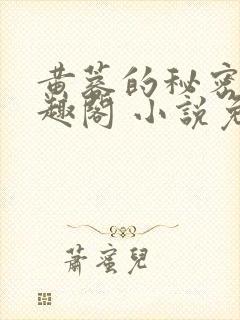 黄蓉的秘密
趣閣 小說免
蕭蜜兒